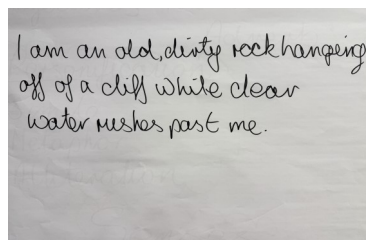 I am an old, dirty rock hanging
off of a cliff while clear
water rushes past me.